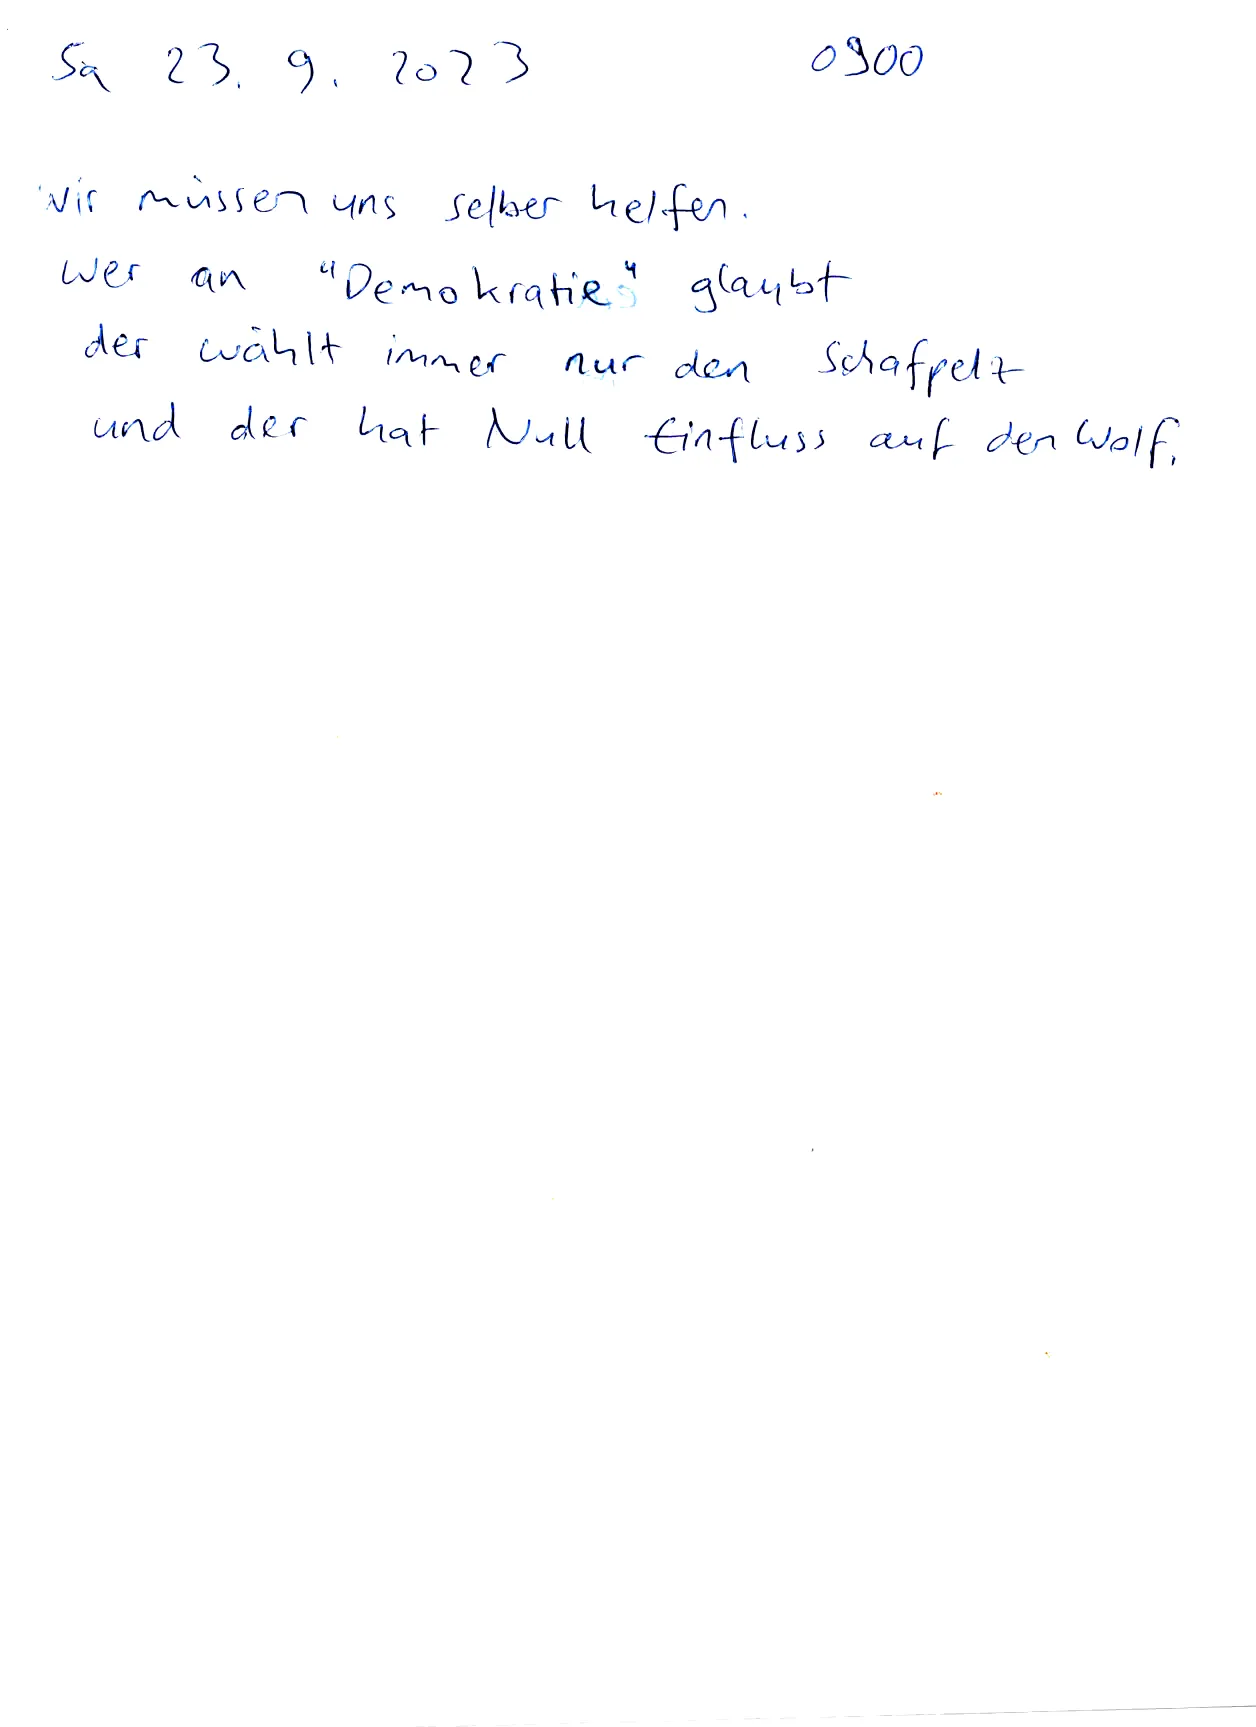 Sa 23. 9. 2023 0900
Wir müssen uns selber helfen.
Wer an "Demokratie" glaubt
der wählt immer nur den Schafpelz
und der hat Null Einfluss auf den Wolf.